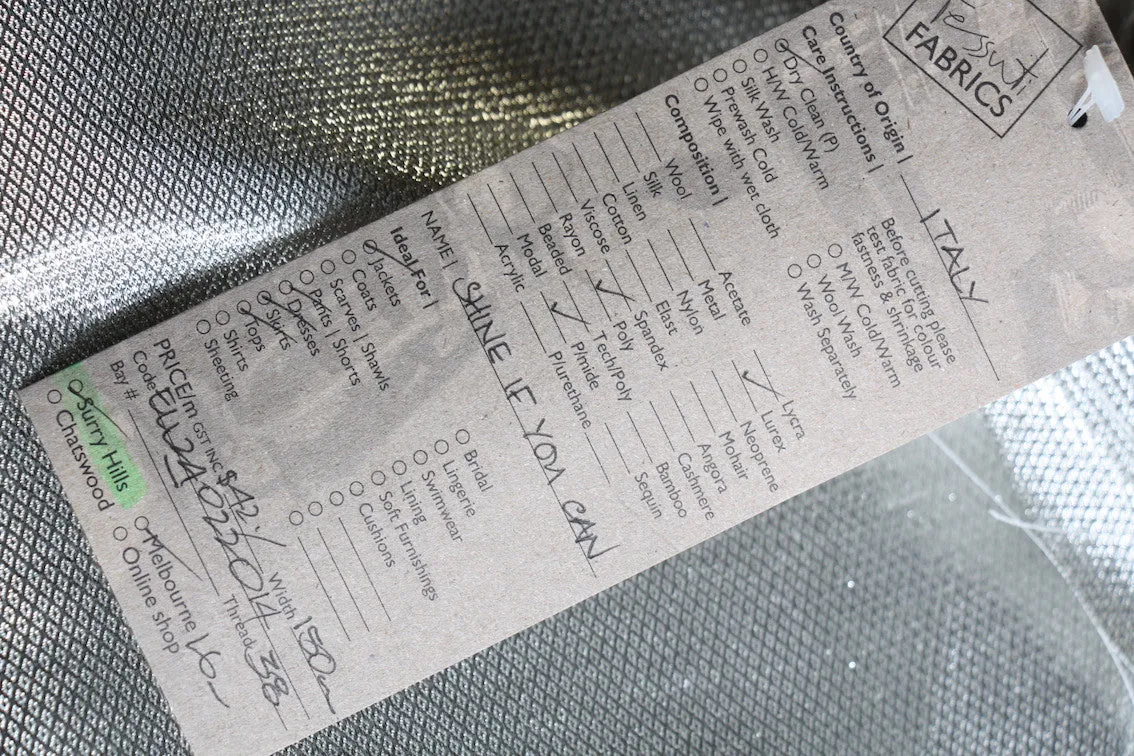 Tessuti
FABRICS
Country of Origin | ITALY
Care Instructions |
Dry Clean (P)
H/W Cold/Warm
Silk Wash
Prewash Cold
Wipe with wet cloth
Before cutting please
test fabric for colour
fastness & shrinkage
M/W Cold/Warm
Wool Wash
Wash Separately
Composition |
Wool
Silk
Linen
Cotton
Viscose
Rayon
Beaded
Modal
Acrylic
Acetate
Metal
Nylon
Elast
Spandex
✓ Poly
Tech/Poly
✓ P/mide
Plurethane
Lycra
✓ Lurex
Neoprene
Mohair
Angora
Cashmere
Bamboo
Sequin
NAME | SHINE IF YOU CAN
Ideal For |
Jackets
Coats
Scarves | Shawls
Pants | Shorts
Dresses
Skirts
Tops
Shirts
Sheeting
Bridal
Lingerie
Swimwear
Lining
Soft Furnishings
Cushions
PRICE/m GST INC $42/ Width 150cm
Code Thread 38
Bay #
Surry Hills
Chatswood
Melbourne
Online shop